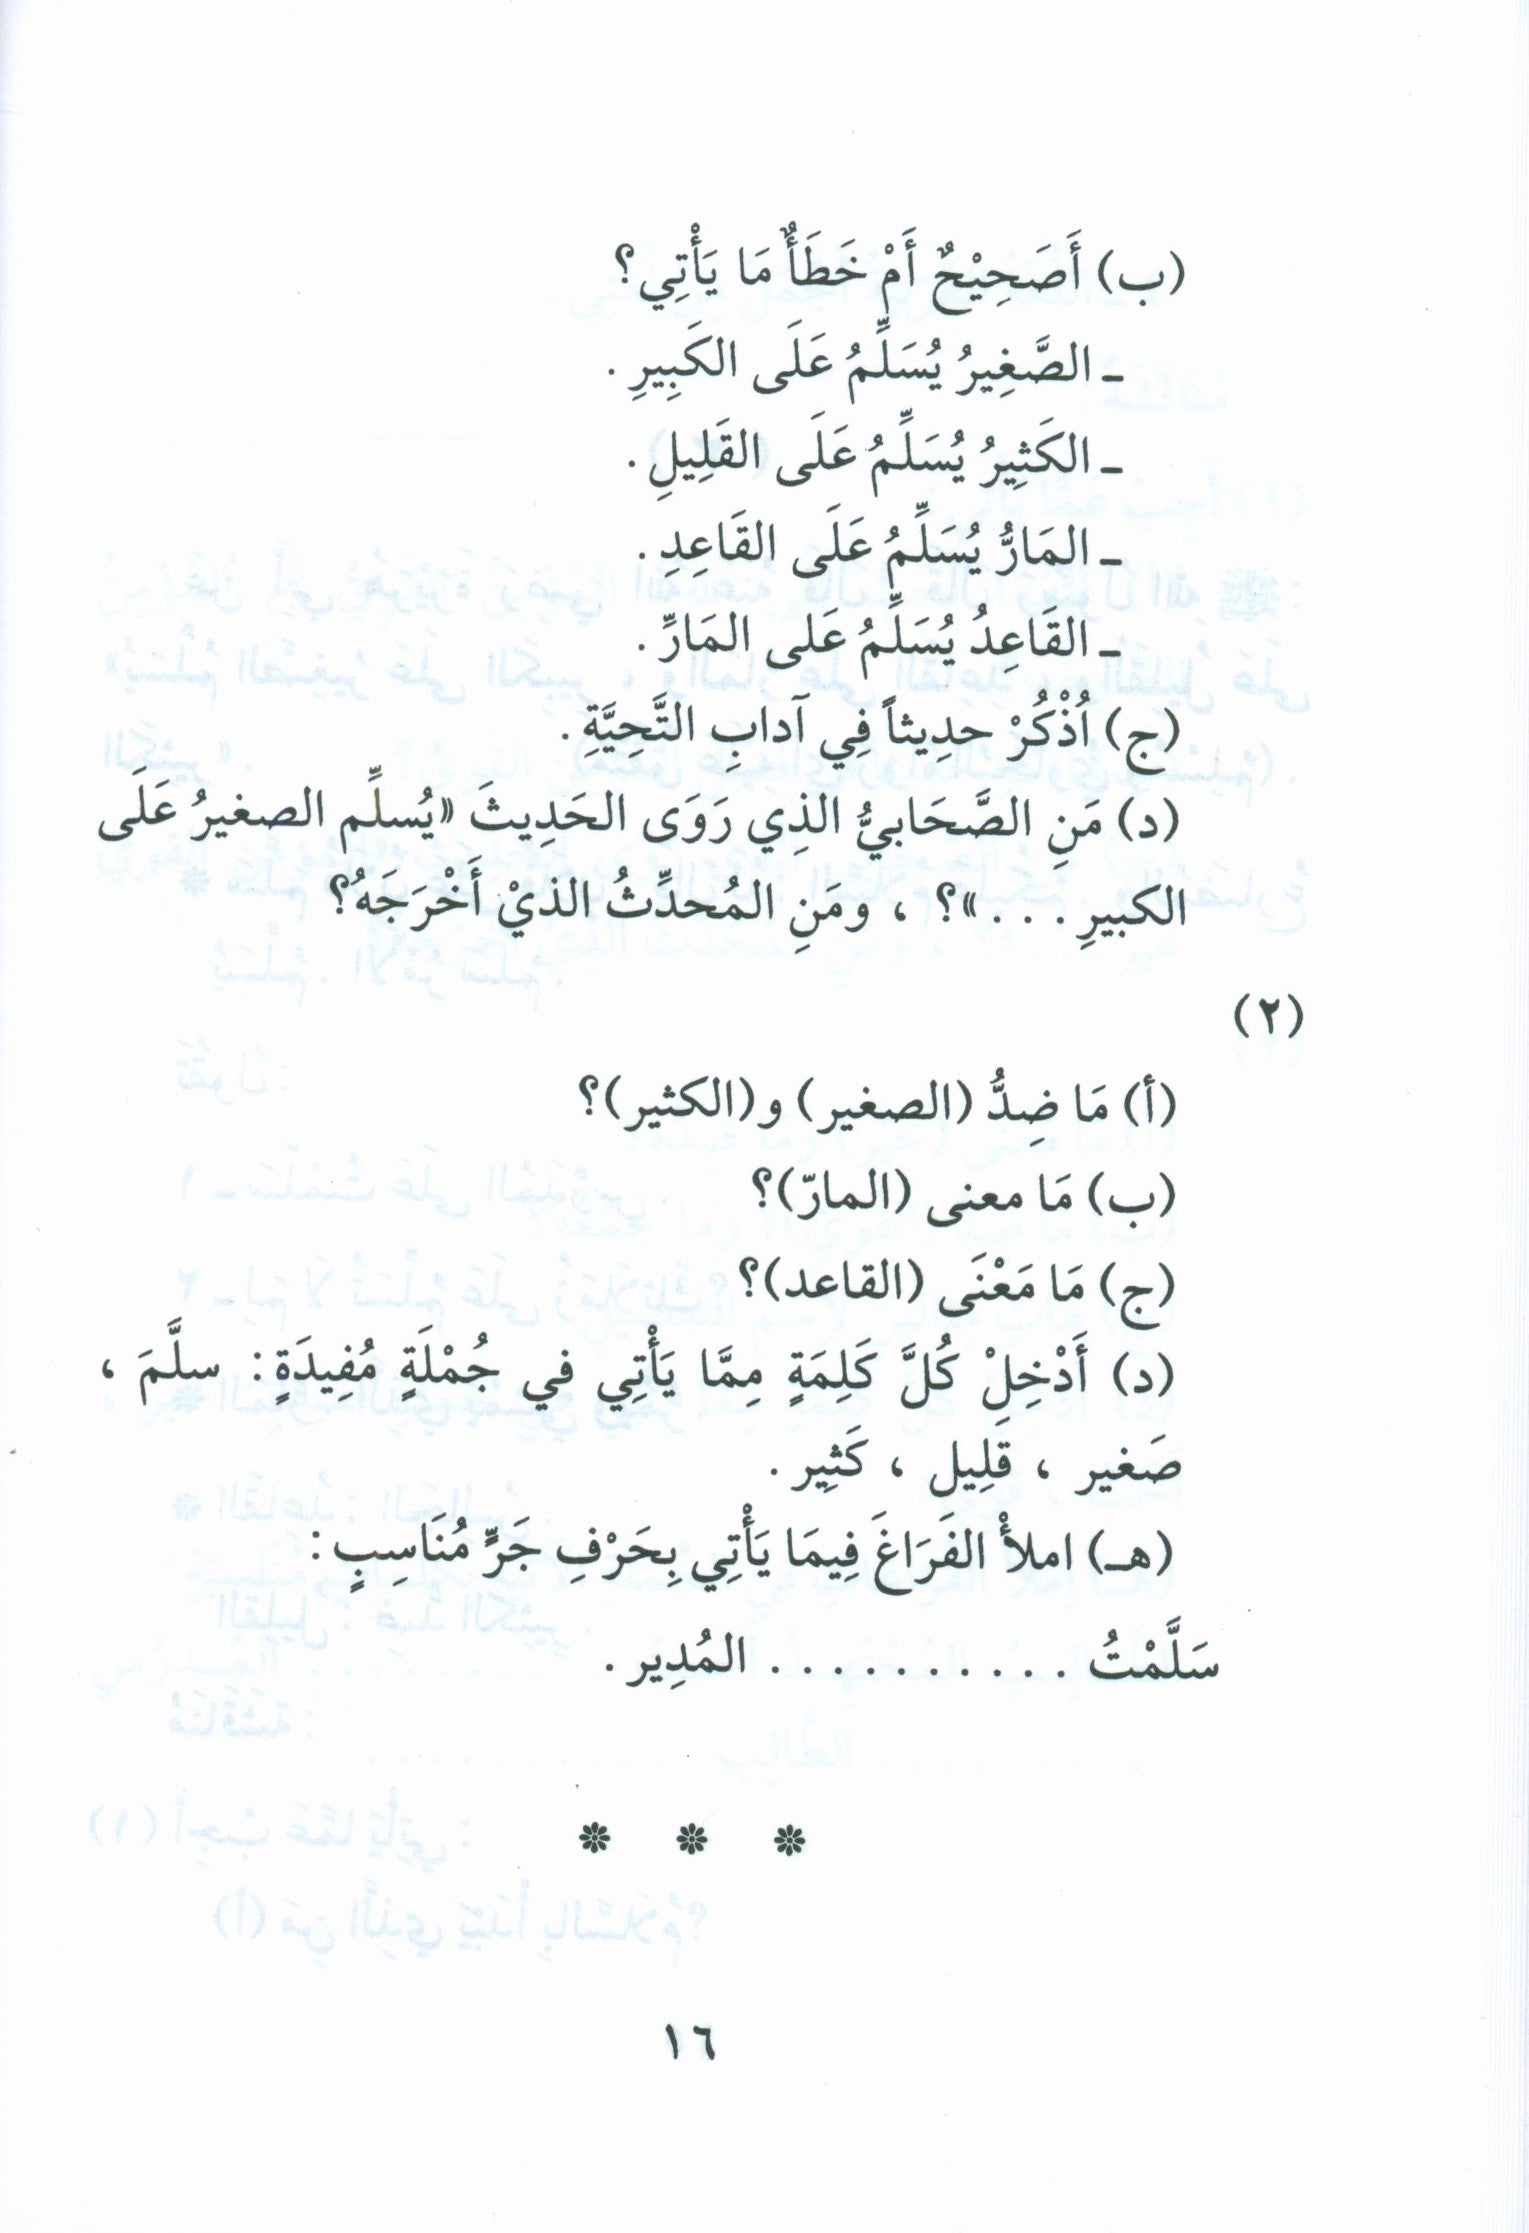 (ب) أَصَحِيْحٌ أَمْ خَطَأٌ مَا يَأْتِي؟
ـ الصَّغِيرُ يُسَلِّمُ عَلَى الكَبِيرِ .
ـ الكَثِيرُ يُسَلِّمُ عَلَى القَلِيلِ .
ـ المَارُّ يُسَلِّمُ عَلَى القَاعِدِ .
ـ القَاعِدُ يُسَلِّمُ عَلى المَارِّ .
(ج) اُذْكُرْ حدِيثاً فِي آدابِ التَّحِيَّةِ .
(د) مَنِ الصَّحَابيُّ الذِي رَوَى الحَدِيثَ «يُسلِّم الصغيرُ عَلَى
الكبيرِ . . . »؟ ، ومَنِ المُحدِّثُ الذيْ أَخْرَجَهُ؟
(٢)
(أ) مَا ضِدُّ (الصغير) و(الكثير)؟
(ب) مَا معنى (المارّ)؟
(ج) مَا مَعْنَى (القاعد)؟
(د) أَدْخِلْ كُلَّ كَلِمَةٍ مِمَّا يَأْتِي في جُمْلَةٍ مُفِيدَةٍ: سلَّمَ ،
صَغير ، قلِيل ، كَثِير .
(هـ) املأْ الفَرَاغَ فِيمَا يَأْتِي بِحَرْفِ جَرٍّ مُنَاسِبٍ :
سَلَّمْتُ . . . . . . . . . . المُدِير .
١٦